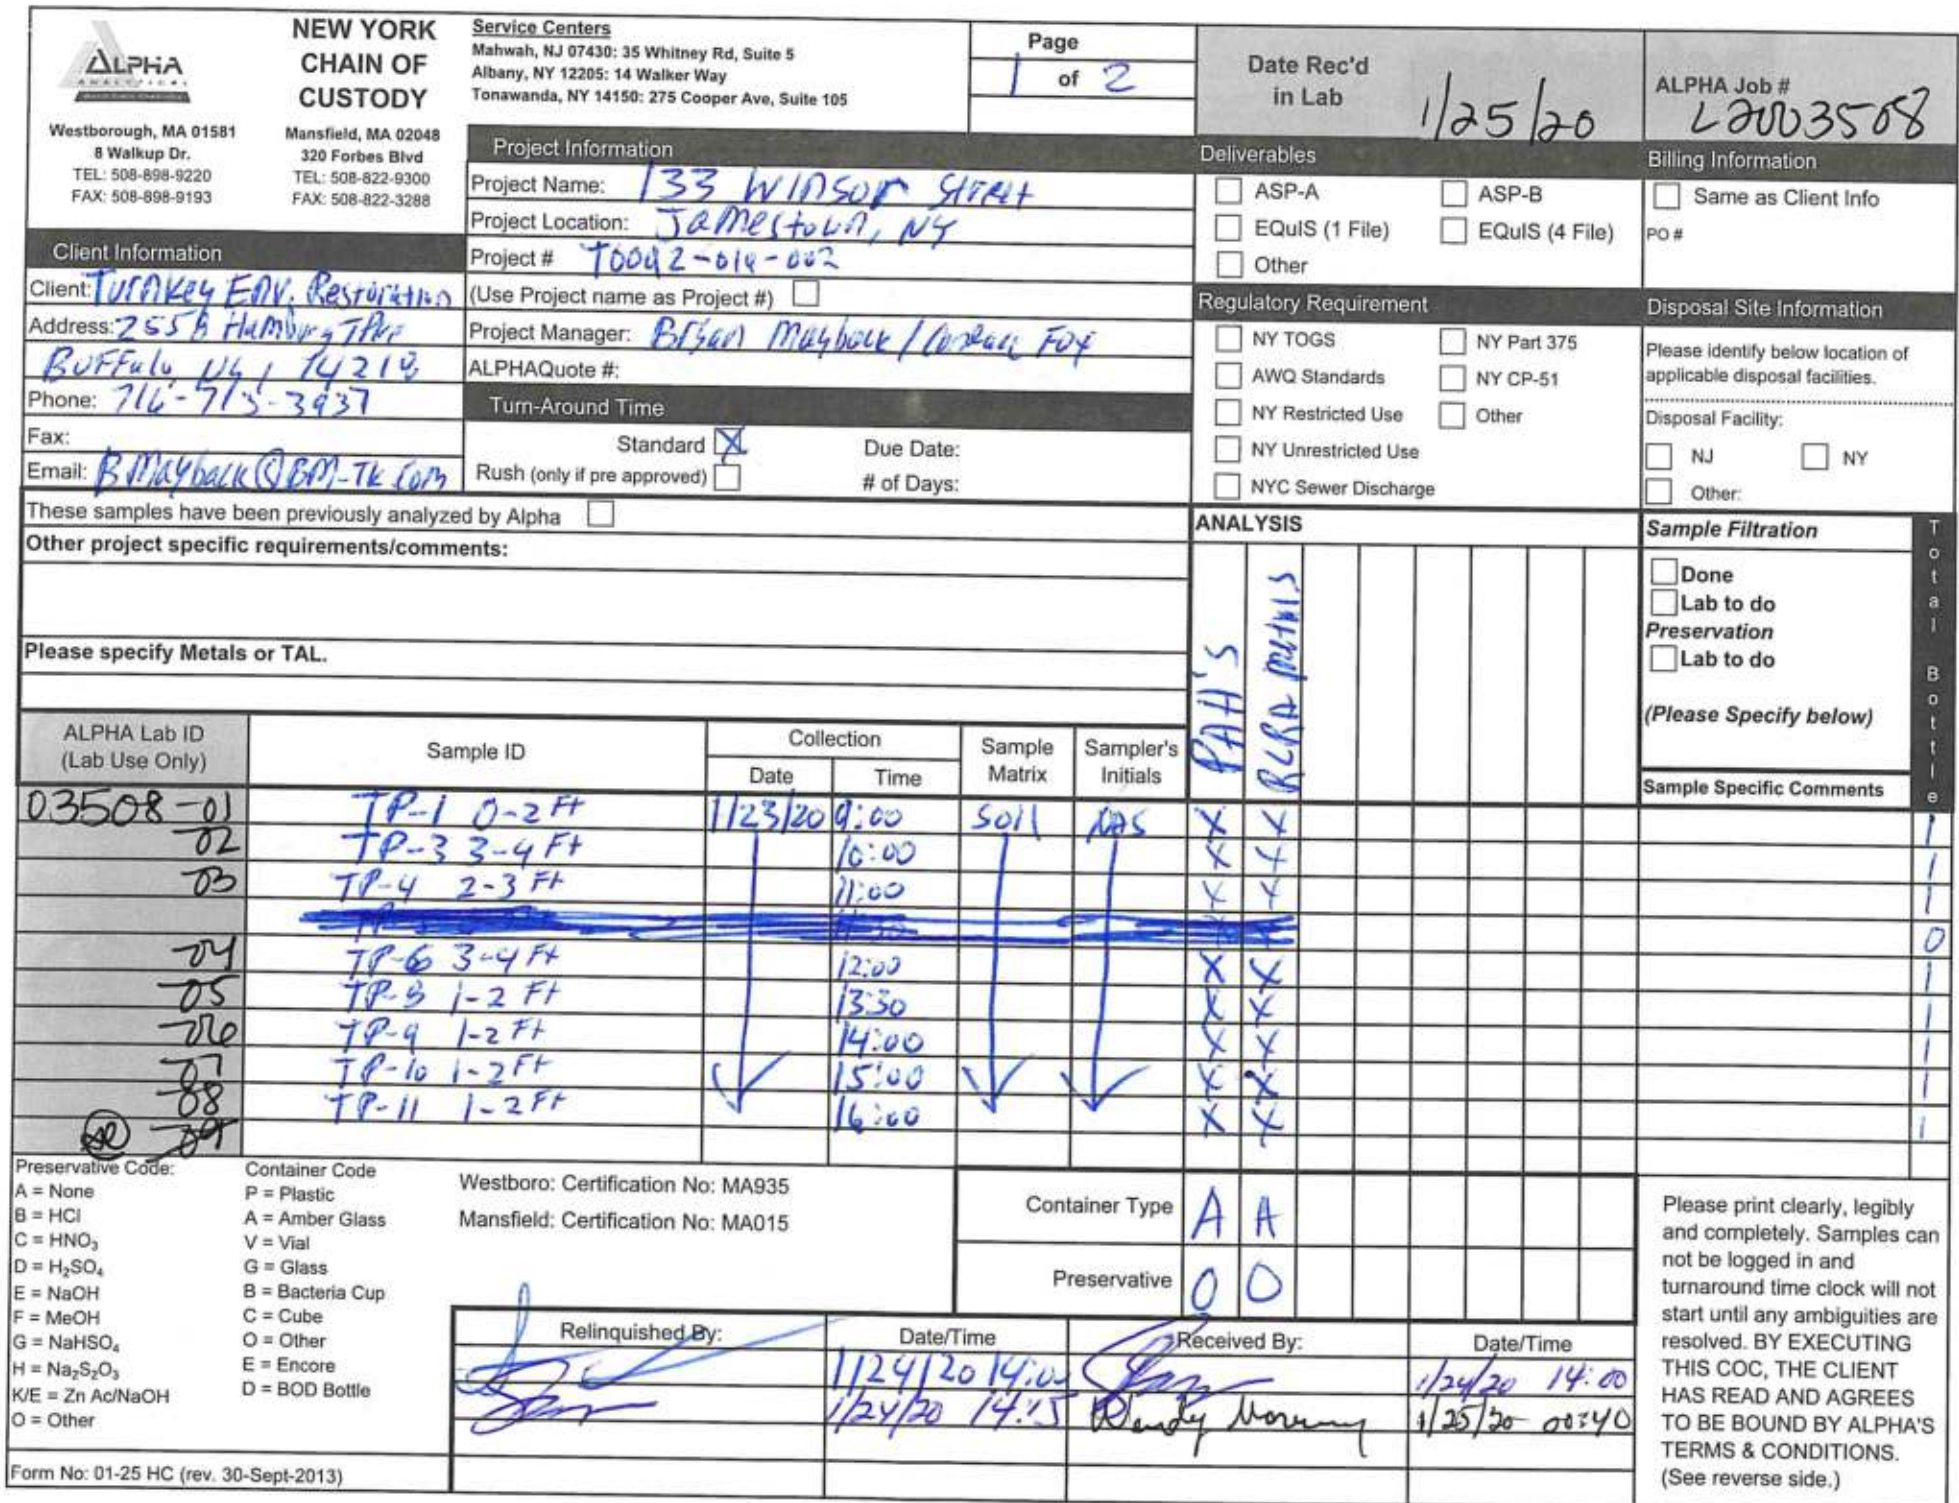 ALPHA
ANALYTICAL
NEW YORK
CHAIN OF
CUSTODY
Westborough, MA 01581
8 Walkup Dr.
TEL: 508-898-9220
FAX: 508-898-9193
Mansfield, MA 02048
320 Forbes Blvd
TEL: 508-822-9300
FAX: 508-822-3288
Service Centers
Mahwah, NJ 07430: 35 Whitney Rd, Suite 5
Albany, NY 12205: 14 Walker Way
Tonawanda, NY 14150: 275 Cooper Ave, Suite 105
Page
1 of 2
Date Rec'd
in Lab
1/25/20
ALPHA Job #
L2003508
Client Information
Client: Turnkey Env. Restoration
Address: 2558 Hamburg TPke
Buffalo NY, 14218
Phone: 716-713-3937
Fax:
Email: BMayback@BM-TK.com
Project Information
Project Name: 133 Winsor Street
Project Location: Jamestown, NY
Project # T0092-019-002
(Use Project name as Project #)
Project Manager: Bryan Mayback / Fox
ALPHAQuote #:
Turn-Around Time
Standard X Due Date:
Rush (only if pre approved) # of Days:
Deliverables
ASP-A ASP-B
EQuIS (1 File) EQuIS (4 File)
Other
Regulatory Requirement
NY TOGS NY Part 375
AWQ Standards NY CP-51
NY Restricted Use Other
NY Unrestricted Use
NYC Sewer Discharge
Billing Information
Same as Client Info
PO #
Disposal Site Information
Please identify below location of
applicable disposal facilities.
Disposal Facility:
NJ NY
Other:
These samples have been previously analyzed by Alpha
Other project specific requirements/comments:
Please specify Metals or TAL.
ANALYSIS
PAH's
RCRA Metals
Sample Filtration
Done
Lab to do
Preservation
Lab to do
(Please Specify below)
Total Bottle
ALPHA Lab ID
(Lab Use Only)
Sample ID
Collection
Date Time
Sample
Matrix
Sampler's
Initials
Sample Specific Comments
03508-01 TP-1 0-2 Ft 1/23/20 9:00 Soil NAS X X 1
02 TP-3 3-4 Ft 10:00 X X 1
03 TP-4 2-3 Ft 11:00 X X 1
0
-04 TP-6 3-4 Ft 12:00 X X 1
-05 TP-8 1-2 Ft 13:30 X X 1
-06 TP-9 1-2 Ft 14:00 X X 1
-07 TP-10 1-2 Ft 15:00 X X 1
-08 TP-11 1-2 Ft 16:00 X X 1
-09
Preservative Code:
A = None
B = HCl
C = HNO3
D = H2SO4
E = NaOH
F = MeOH
G = NaHSO4
H = Na2S2O3
K/E = Zn Ac/NaOH
O = Other
Container Code
P = Plastic
A = Amber Glass
V = Vial
G = Glass
B = Bacteria Cup
C = Cube
O = Other
E = Encore
D = BOD Bottle
Westboro: Certification No: MA935
Mansfield: Certification No: MA015
Container Type A A
Preservative O O
Relinquished By: Date/Time Received By: Date/Time
1/24/20 14:00 1/24/20 14:00
1/24/20 14:15 Wendy 1/25/20 00:40
Please print clearly, legibly
and completely. Samples can
not be logged in and
turnaround time clock will not
start until any ambiguities are
resolved. BY EXECUTING
THIS COC, THE CLIENT
HAS READ AND AGREES
TO BE BOUND BY ALPHA'S
TERMS & CONDITIONS.
(See reverse side.)
Form No: 01-25 HC (rev. 30-Sept-2013)